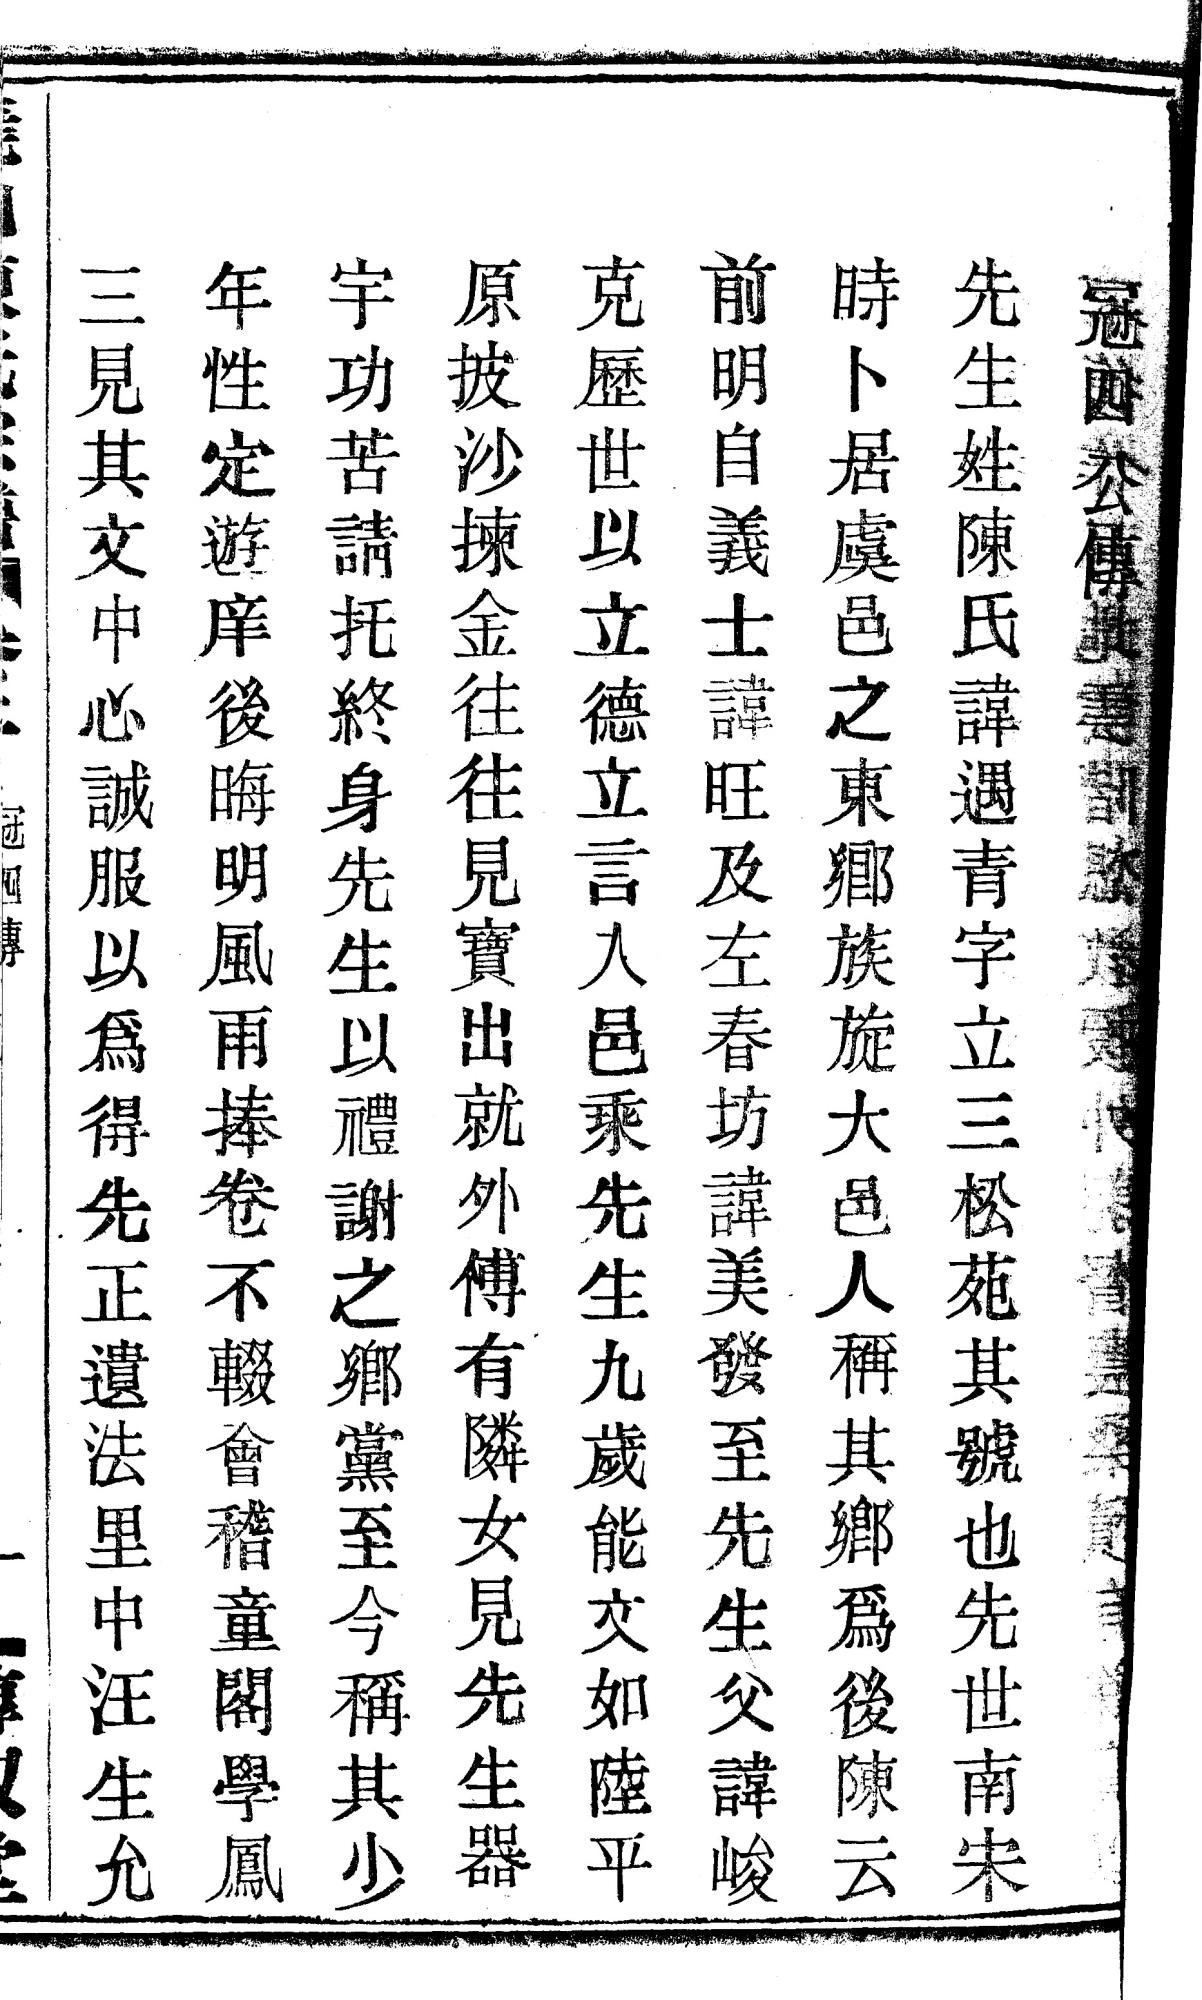 冠四公傳
先生姓陳氏諱遇青字立三松苑其號也先世南宋
時卜居虞邑之東鄉族旋大邑人稱其鄉爲後陳云
前明自義士諱旺及左春坊諱美發至先生父諱峻
克歷世以立德立言人邑乘先生九歲能文如陸平
原披沙揀金往往見寶出就外傅有隣女見先生器
宇功苦請托終身先生以禮謝之鄉黨至今稱其少
年性定遊庠後晦明風雨捧卷不輟會稽童閣學鳳
三見其文中心誠服以爲得先正遺法里中汪生允
冠四傳